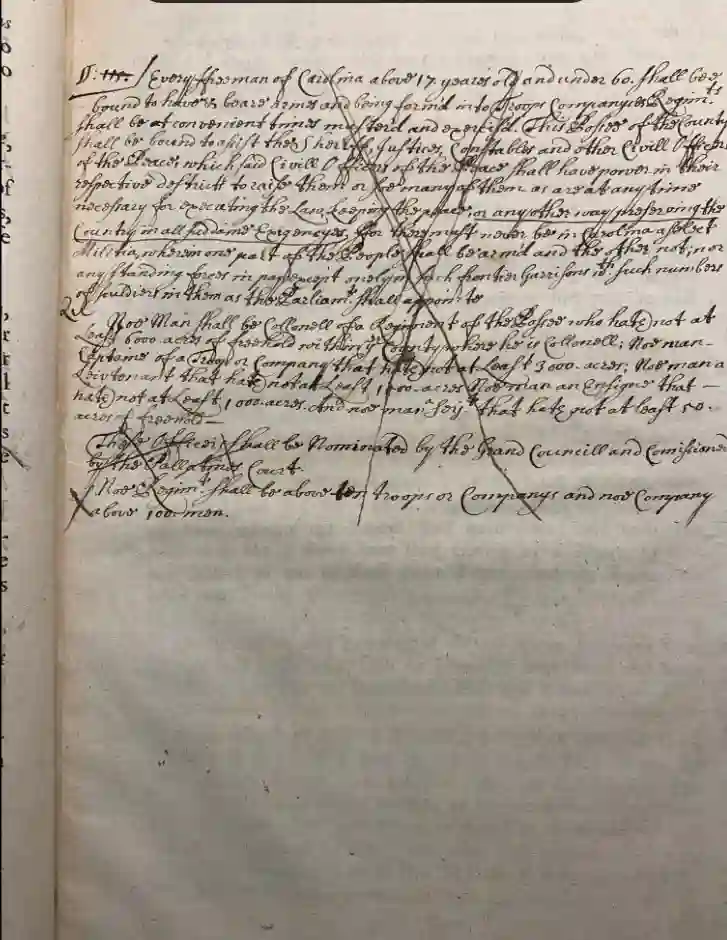 §: 115. / Every freeman of Carolina above 17 yeares old and under 60. shall bee
bound to have & beare armes and being formd into Troops Companyes & Regim.ts
shall be at convenient times musterd and exercisd. This Possee of the County
shall be bound to assist the Sheriffs, Justices, Constables and other Civill Officers
of the Peace, which said Civill Officers of the Peace shall have power in their
respective destrict to raise them or soe many of them as are at any time
necessary for executing the Law, keeping the peace, or any other way preserving the
Country in all suddaine Exigencyes, for there must never be in Carolina a select
Militia, wherein one part of the People shall be armd and the other not; nor
any standing forces in pay except onely in such frontier Garrisons wth such numbers
of souldiers in them as the Parliam.t shall appointe
Noe Man shall be Collonell of a Regiment of the Possee who hath not at
Least 6000 acres of freehold within ye County where he is Collonell; Noe man
Captaine of a Troop or Company that hath not at Least 3000. acres; Noe man a
Leivtenant that hath not at Least 1000. acres Noe man an Ensigne that —
hath not at Least 1000. acres. And noe man Serj.t that hath not at least 50.
acres of freehold —
These Officers shall be Nominated by the Grand Councill and Comissioned
by the Pallatines Court.
Noe Regim.t shall be above ten troops or Companys and noe Company
above 100. men.